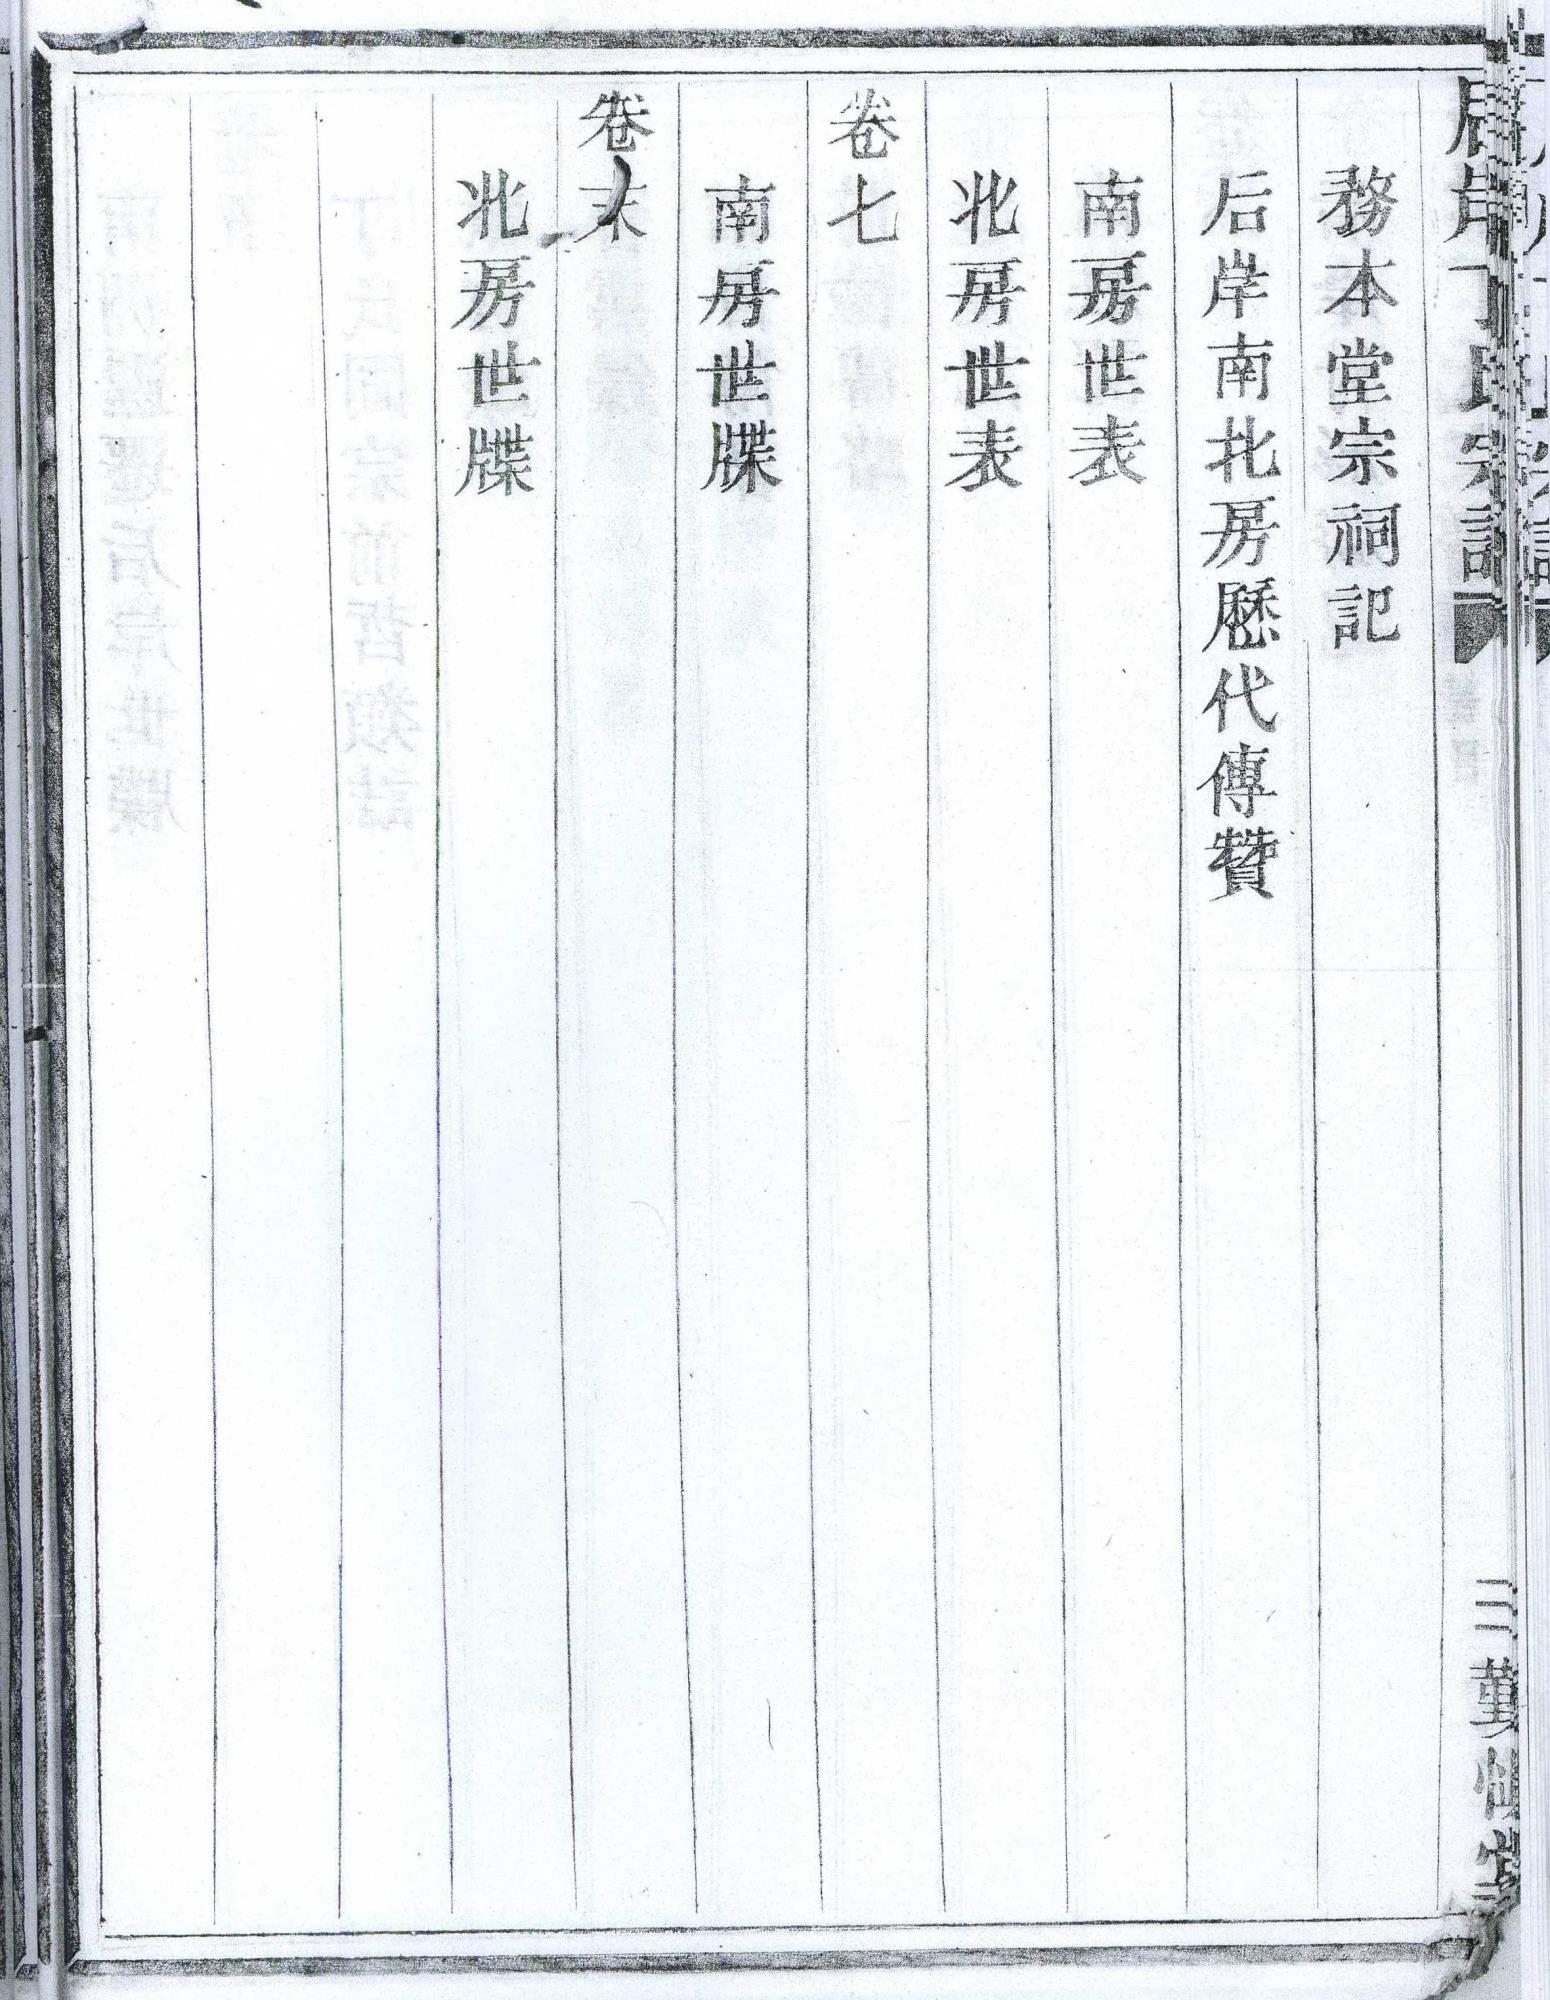 后岸丁氏宗譜
三
務本堂宗祠記
后岸南北房歷代傳贊
南房世表
北房世表
卷七
南房世牒
卷末
北房世牒